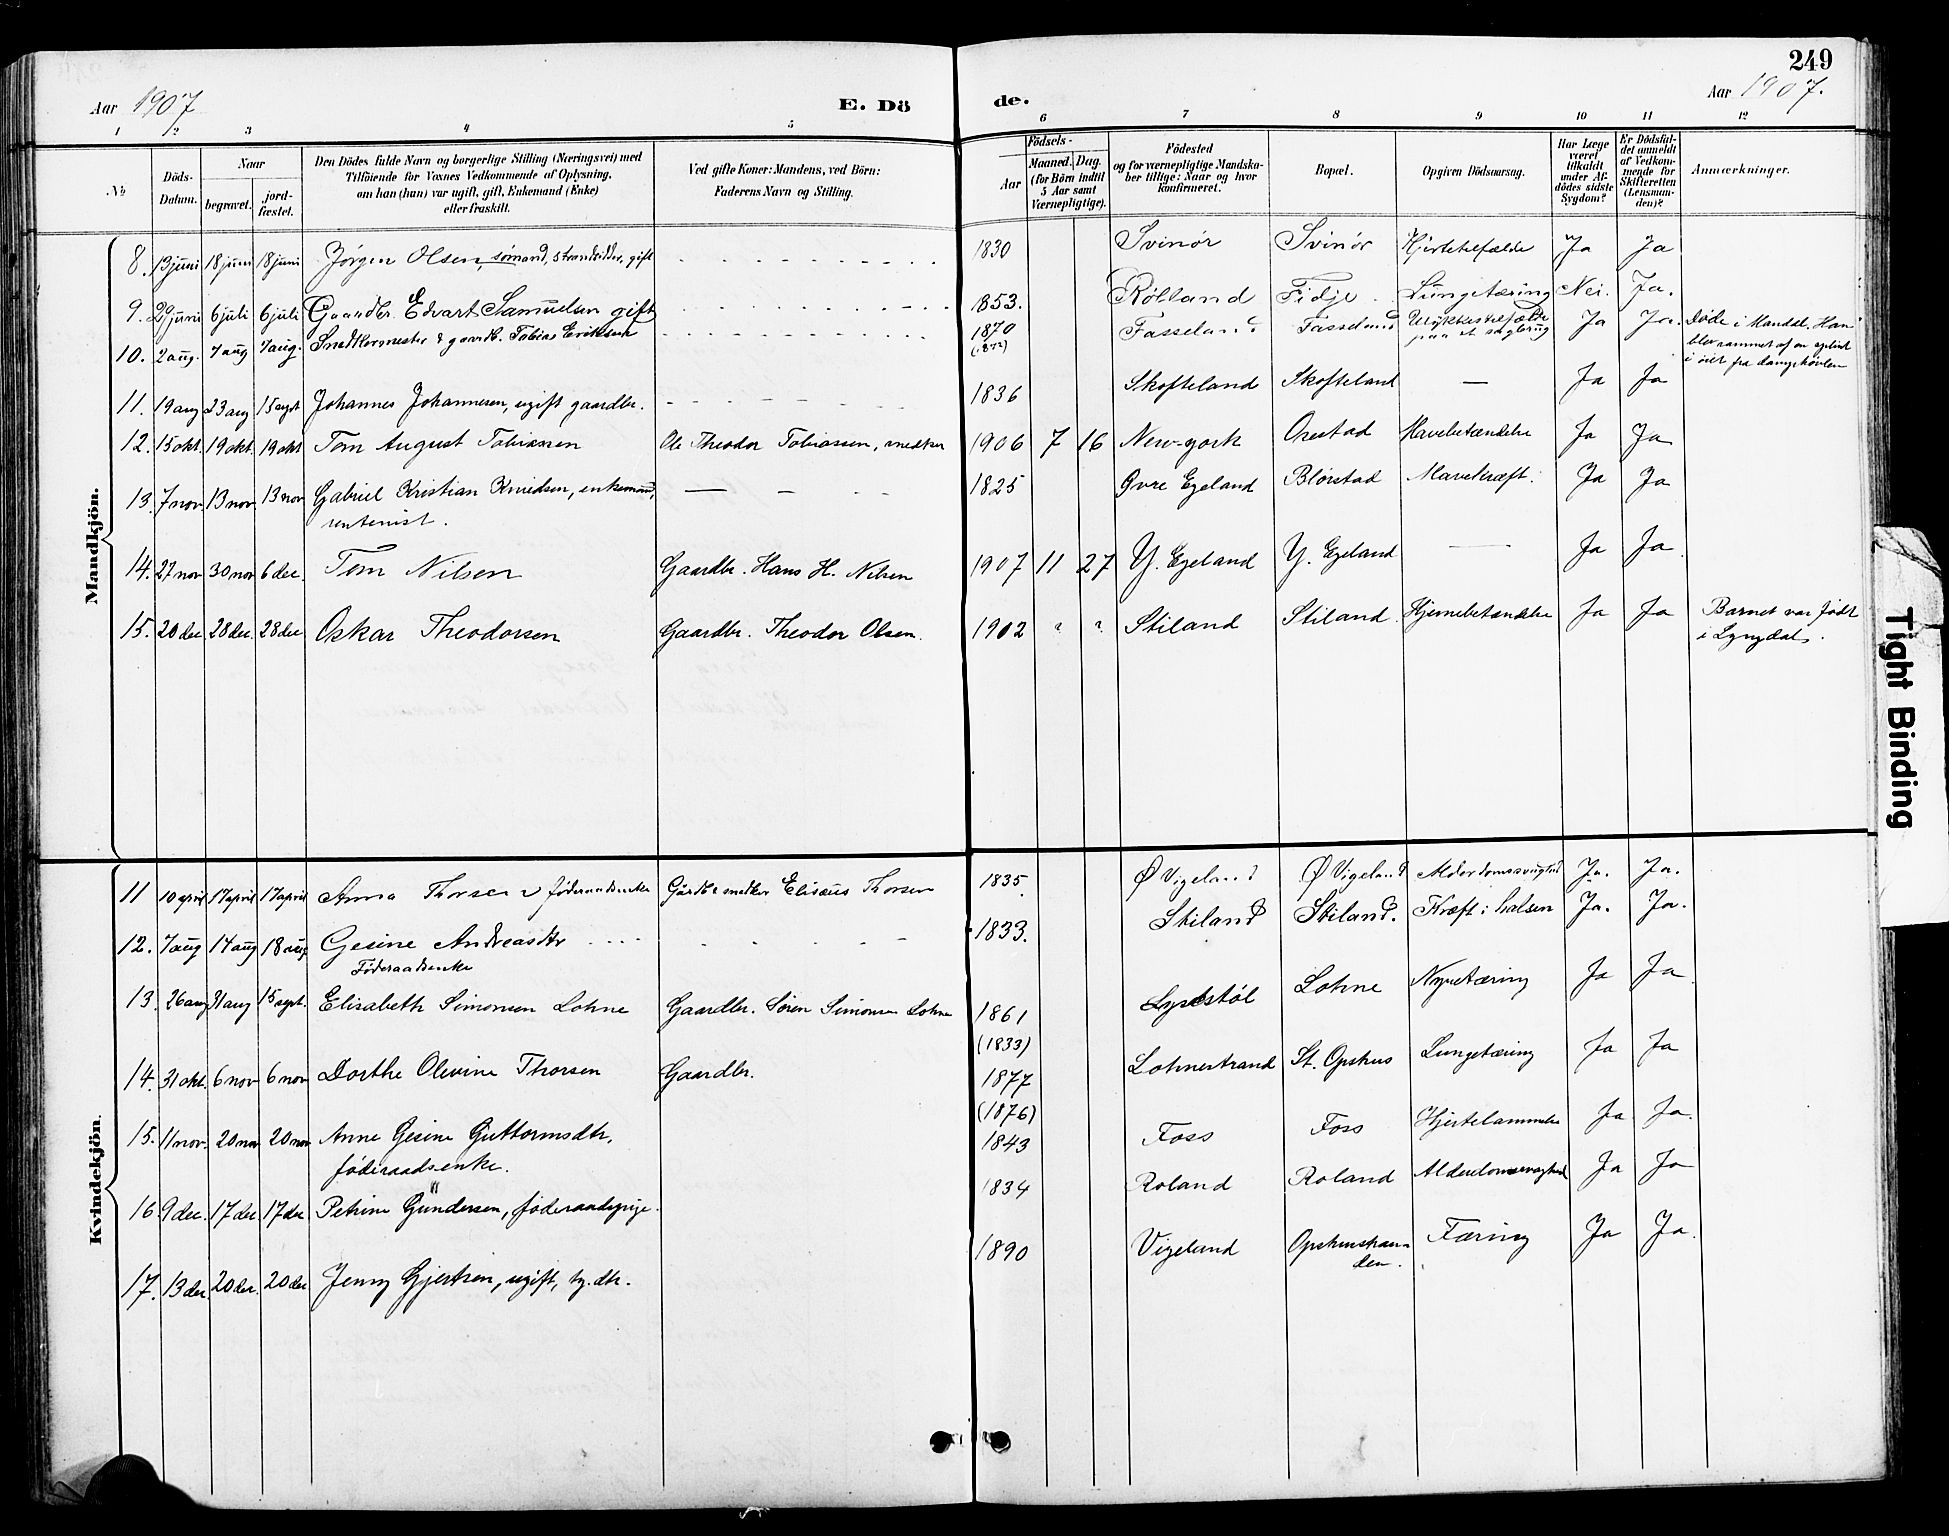 249
Aar 1907
E. Dö
de.
Aar 1907.
1 2 3 4 5 6 7 8 9 10 11 12
№
Döds-Datum.
Naar
begravet.
jord-fæstet.
Den Dödes fulde Navn og borgerlige Stilling (Næringsvei) med
Tilföiende for Voxnes Vedkommende af Oplysning,
om han (hun) var ugift, gift, Enkemand (Enke)
eller fraskilt.
Ved gifte Koner: Mandens, ved Börn:
Faderens Navn og Stilling.
Födsels-
Aar
Maaned. Dag.
(for Börn indtil
5 Aar samt
Værnepligtige).
Födested
og for værnepligtige Mandska-
ber tillige: Naar og hvor
konfirmeret.
Bopæl.
Opgiven Dödsaarsag.
Har Læge
været
tilkaldt
under Af-
dödes sidste
Sygdom?
Er Dödsfal-
det anmeldt
af Vedkom-
mende for
Skifteretten
(Lensman-
den)?
Anmærkninger.
Mandkjön.
8. 13 juni 18 juni 18 juni Jørgen Olsen, sømand, strandsidder, gift 1830 Svinør Svinør Hjertetilfælde Ja Ja
9. 29 juni 6 juli 6 juli Gaardbr. Edvart Samuelsen gift 1853. Röiland Fidje Lungetæring Nei. Ja.
10. 2 aug. 7 aug 7 aug. Snedkermester & gaardb. Tobias Eriksen 1870 Fasseland Fasseland Ulykkestilfælde Ja Ja. Døde i Mandal, Han
(1872) paa et sagbrug blev rammet af en splint
i øiet fra damphøvlen
11. 19 aug 23 aug 15 sept Johannes Johannesen, ugift gaardbr. 1836 Skofteland Skofteland — Ja Ja
12. 15 okt. 19 okt. 19 okt Tom August Tobiassen Ole Theodor Tobiassen, snedker 1906 7 16 New-york Orestad Mavebetændelse Ja Ja
13. 7 nov 13 nov. 13 nov Gabriel Kristian Knudsen, enkemand, 1825 Øvre Egeland Blørstad Mavekræft. Ja Ja
rentenist.
14. 27 nov 30 nov 6 dec. Tom Nilsen Gaardbr. Hans H. Nilsen 1907 11 27 Y. Egeland Y. Egeland — Ja Ja.
15. 20 dec 28 dec. 28 dec Oskar Theodorsen Gaardbr. Theodor Olsen. 1902 ? ? Stiland Stiland. Hjernebetændelse Ja Ja Barnet var født
i Lyngdal.
Kvindekjön.
11 10 april 17 april 17 april Anna Thorsen føderaadsenke Gårdb & snedker Elisæus Thorsen 1835. Ø Vigeland Ø Vigeland Alderdomssvaghed Ja. Ja.
12. 7 aug 14 aug 18 aug Gesine Andreasdtr 1833. Stiland Stiland. Kræft i halsen Ja. Ja.
Føderaadsenke
13. 26 aug 31 aug 15 sept. Elisabeth Simonsen Lohne Gaardbr. Søren Simonsen Lohne 1861 Lohne Nyretæring Ja Ja.
(1833)
14. 31 okt. 6 nov 6 nov Dorthe Olevine Thorsen Gaardbr. 1877 Lohnestrand St. Opshus Lungetæring Ja Ja
(1876)
15. 11 nov. 20 nov 20 nov Anne Gesine Guttormsdtr, 1843 Foss Foss Hjertelammelse Ja Ja.
føderaadsenke.
16. 9 dec. 17 dec 17 dec Petrine Gundersen, føderaadspige. 1834 Roland Roland Alderdomssvaghed Ja Ja
17. 13 dec. 20 dec. 20 dec Jenny Gjertsen, ugift, tj. dtr. 1890 Vigeland Opshusstran-
den. Tæring Ja Ja.
Tight Binding